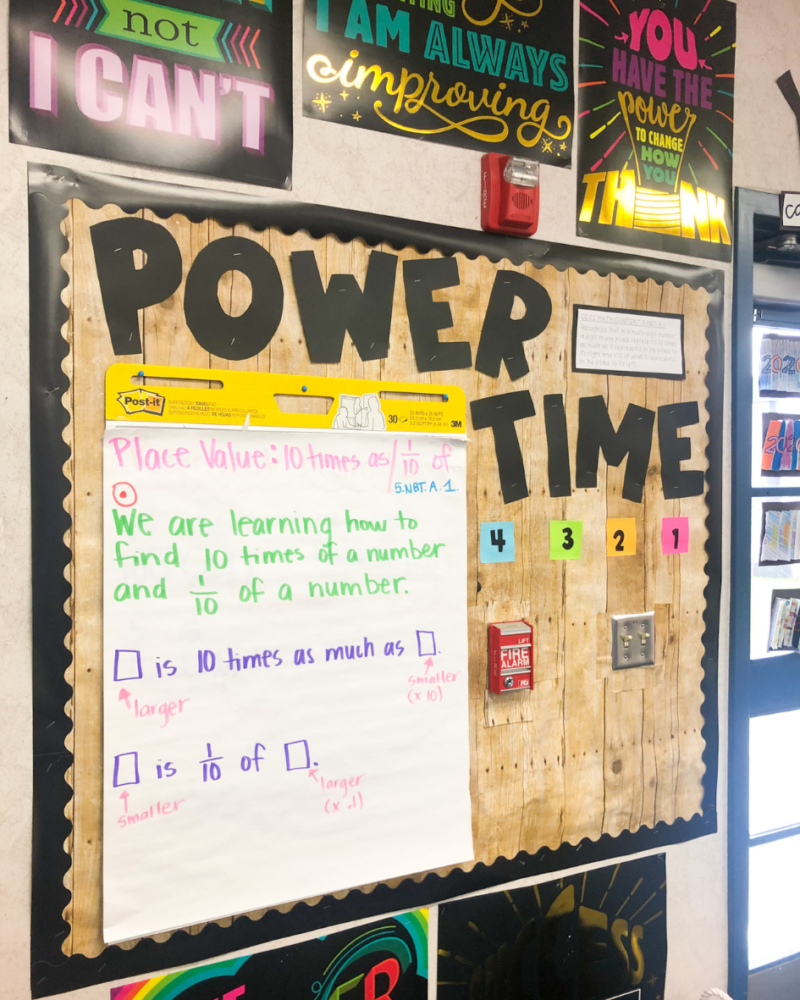 not
I CAN'T
I AM ALWAYS
improving
YOU
HAVE THE
power
TO CHANGE
HOW
YOU
THINK
FIRE
POWER
TIME
Post-it
30
3M
Place Value: 10 times as/ 1/10 of
5.NBT.A.1.
We are learning how to
find 10 times of a number
and 1/10 of a number.
□ is 10 times as much as □.
larger
smaller
(x 10)
□ is 1/10 of □.
smaller
larger
(x .1)
4 3 2 1
LIFT
FIRE
ALARM